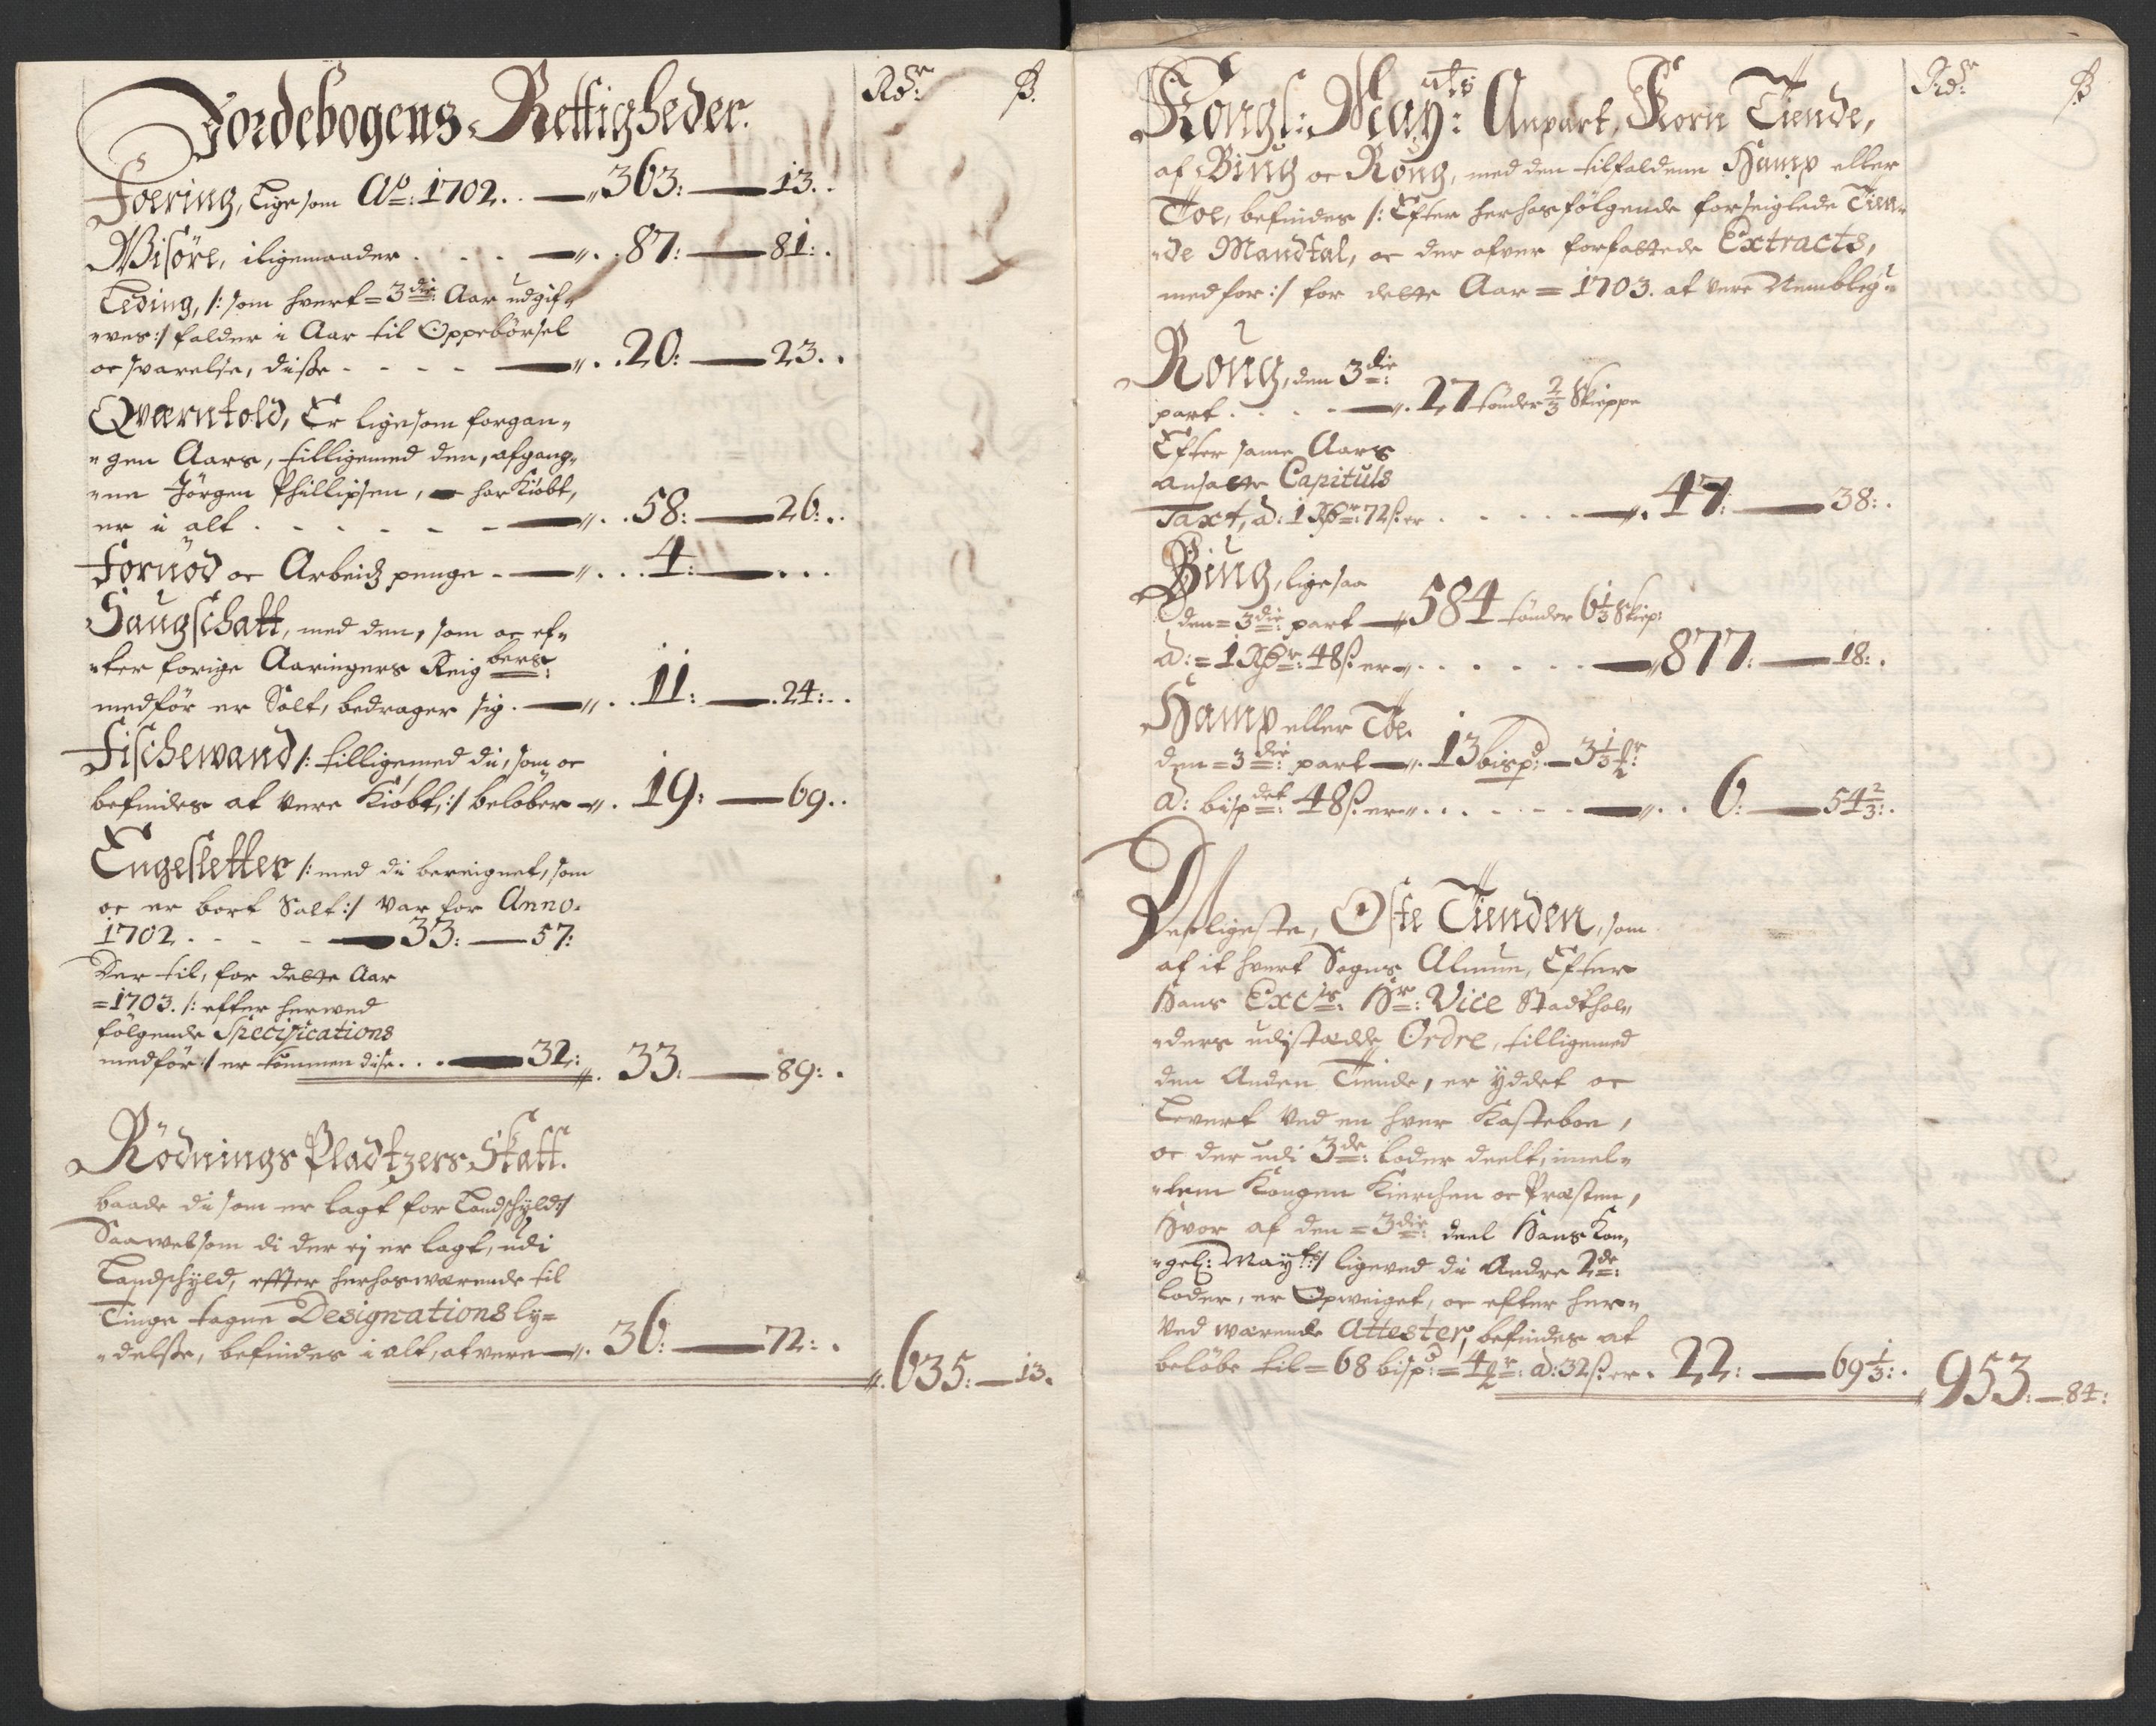 Jordebogens Rettigheder. Rdr: ß.
Foering, Lige som Ao: 1702. . — 363: — 13. .
Wisöre, iligemaader . . . — 87: — 81: .
Leding, /: som hvert = 3die: Aar udgif„
„ves :/ falder i Aar til Oppebörsel
oc svarelse, disse - - - - — 20: — 23. .
Qværntold, Er ligesom forgan„
„gen Aars, tilligemed den, afgang„
„ne Jörgen Phillipsen, har Kiöbt,
er i alt . - - - - - — 58: — 26: . .
Fornöd oc Arbeidz penge - — 4: — . . .
Haugschatt, med den, som oc ef„
„ter forige Aaringers Reigbers:
medför er Solt, bedrager sig . — 11: — 24: . .
Fischewand /: tilligemed di, som oc
befindes at vere Kiöbt :/ belöber — 19: — 69. .
Engesletter /: med di bereignet, som
oc er bort Solt :/ var for Anno.
1702 . - - - — 33: — 57:
Der til, for dette Aar
= 1703. /: efter herved
fölgende Specifications
medför :/ er kommen disse . . . — 32: 33: — 89: .
Rödnings Pladtzers Skatt.
baade di som er lagt for Landschyld :/
Saavelsom di der ej er lagt, udi
Landschyld, effter herhosværende til
Tinge tagne Designations ly=
„delsse, befindes i alt, at vere — 36: — 72: .
635: — 13.
Kongl: Mayts: Anpart, Korn Tiende, Rdr: ß
af Biug oc Roug, med den tilfaldene Hamp eller
Toe, befindes /: Efter herhos fölgende forseiglede Tien„
„de Mandtal, oc der ofver forfattede Extracts,
medför :/ for dette Aar = 1703. at vere Nemblig:
Roug, den 3die:
part . . . . — 27 tönder 2/3 Skieppe
Efter samme Aars
ansatte Capituls
Taxt, a: 1 Rdr: 72 ß. er . . . . . — 47: — 38: .
Biug, lige saa
den = 3die: part — 584 tönder 6 1/3 Skiep:
a: = 1 Rdr: 48 ß. er . . . . . . — 877: — 18: .
Hamp eller Toe.
den = 3die: part — 13 bispd: — 3 1/3 lr:
a: bispdet: 48 ß. er . . . - - - — . . 6: — 54 2/3: .
Desligeste, Oste Tienden, som
af it hvert Sogns Almue, Efter
Hans Excls: Hr: Vice Stadthol„
„ders udstædde Ordre, tilligemed
den Anden Tiende, er yddet oc
Levert ved en hver Kasteboe,
oc der udi 3de: Loder deelt, imel„
„lem Kongen Kierchen oc Præsten,
Hvor af den = 3die: deel Hans Kon„
„gel: Mayts :/ ligeved di Andre 2de:
loder, er Opveiget, oc efter her„
ved værende Attester, befindes at
belöbe til = 68 bispd: = 4 lr: a: 32 ß. er . 22: — 69 1/3: . 953: — 84: